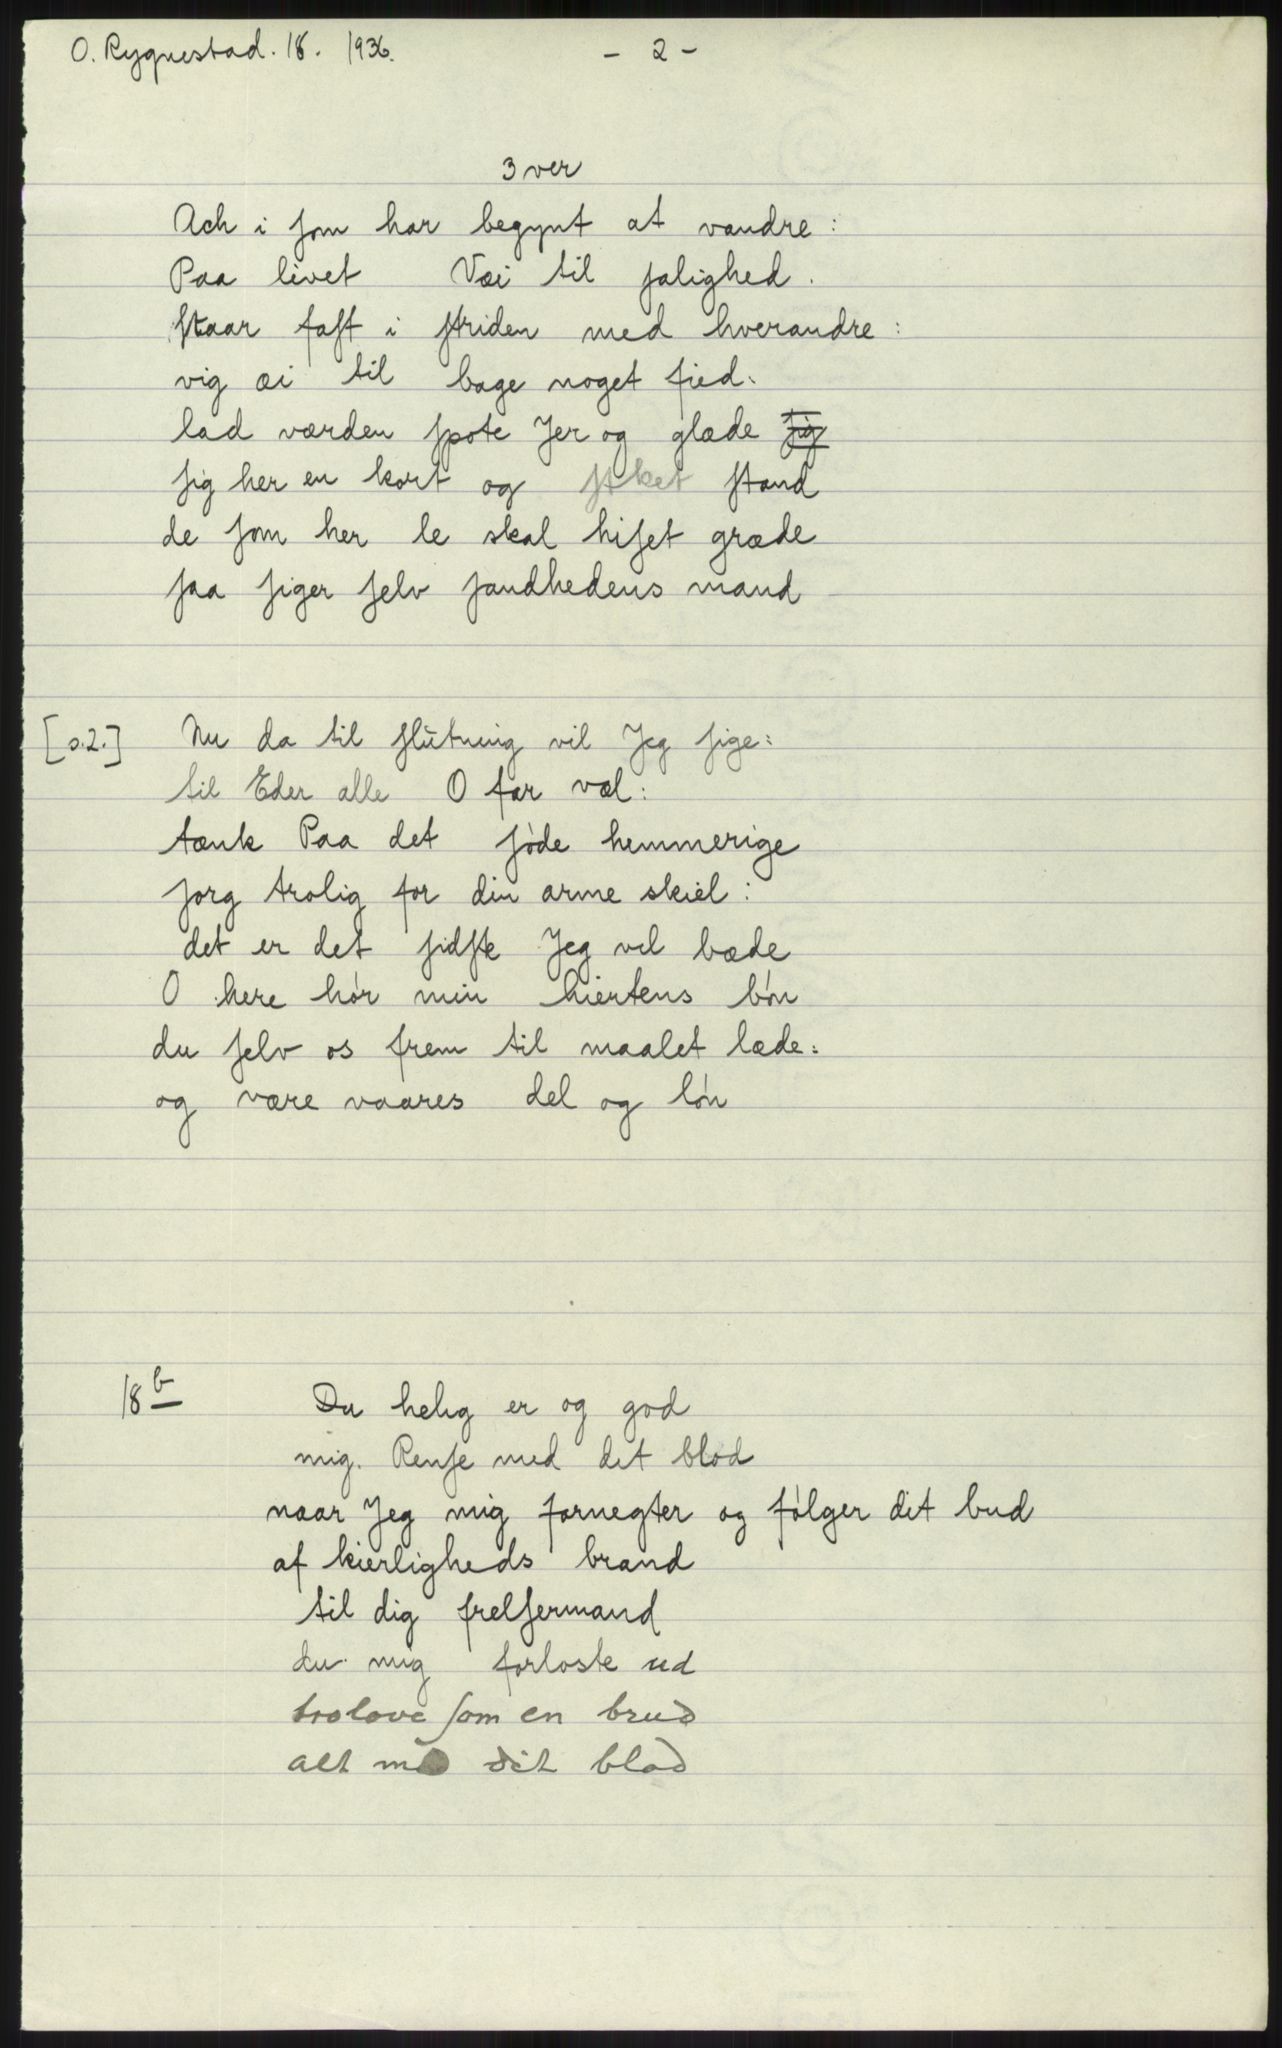 O. Rygnestad. 18. 1936.
- 2 -
3 ver
Ach i ſom har begynt at vandre:
Paa livet Væi til ſalighed.
ſtaar faſt i ſtriden med hverandre:
vig æi til bage noget fied:
lad værden ſpote Jer og glæde ſig
ſig her en kort og ſtket ſtand
de ſom her le skal hiſet græde
ſaa ſiger ſelv ſandhedens mand
[s.2.] Nu da til ſlŭtning vil Jeg ſige:
til Eder alle O far væl:
tænk Paa det ſóde hemmerige
ſorg trolig for din arme skiel:
det er det ſidſte Jeg vel bæde
O here hór min hiertens bón
du ſelv os frem til maalet læde:
og være vaares del og lón
18 b Du helig er og god
mig. Renſe med det blod
naar Jeg mig fornegter og fólger dit bud
af kierligheds brand
til dig frelſermand
du mig forloste ud
trolove ſom en brud
alt dit blod